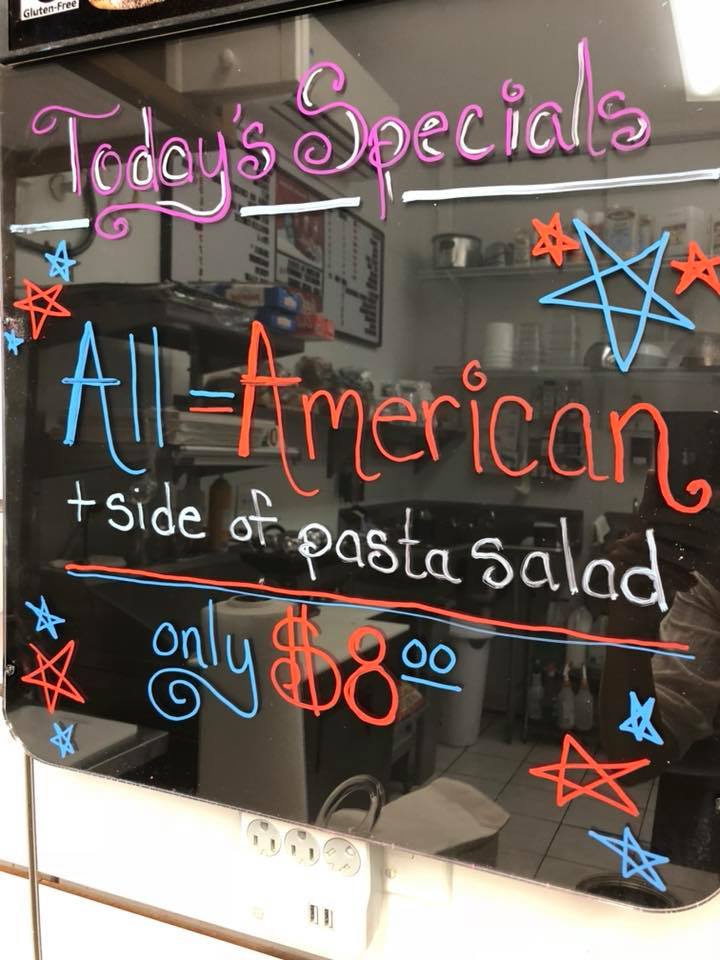 Gluten-Free
Today's Specials
All=American
+ side of pasta salad
only $8.00